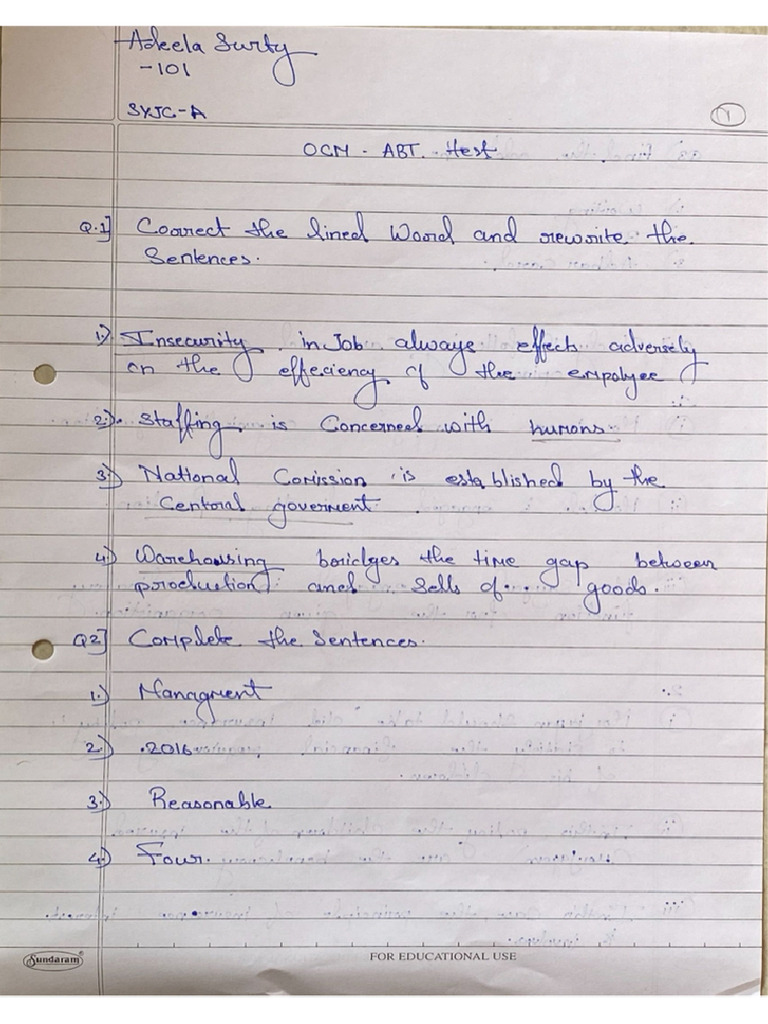 Adeela Surty
-101
SYJC-A
1
OCM - ABT. Test
Q.1] Correct the lined Word and rewrite the
Sentences.
1.) Insecurity in Job always effect adversely
on the effeciency of the empolyee
2.) Staffing is Concerned with humans.
3.) National Comission is established by the
Central goverment
4.) Warehousing bridges the time gap between
production and sells of goods.
Q2] Complete the Sentences.
1.) Managment
2.) 2016
3.) Reasonable
4.) Four.
Sundaram
FOR EDUCATIONAL USE